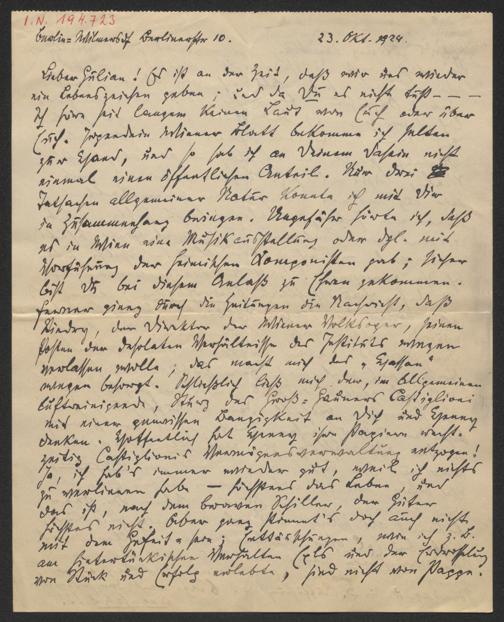 I.N. 194.723
Berlin-Wilmersdf Berlinerstr 10. 23. Okt. 1924.
Lieber Julian! Es ist an der Zeit, daß wir uns wieder
ein Lebenszeichen geben; und da Du es nicht tust - - -
Ich höre seit langem keinen Laut von Euch oder über
Euch. Irgendein Wiener Blatt bekomme ich selten
zur Hand, und so hab ich an Deinem Dasein nicht
einmal einen öffentlichen Anteil. Nur drei
Tatsachen allgemeiner Natur konnte ich mit Dir
in Zusammenhang bringen. Ungefähr hörte ich, daß
es in Wien eine Musikausstellung oder dgl. mit
Vorführung der heimischen Komponisten gab; sicher
bist Du bei diesem Anlaß zu Ehren gekommen.
Ferner ging durch die Zeitungen die Nachricht, daß
der Direktor der Wiener Volksoper, seinen
Posten der desolaten Verhältnisse des Instituts wegen
verlassen wolle; das macht mich des "Hassan"
wegen besorgt. Schließlich ließ mich der, im Allgemeinen
luftreinigende, Sturz des Groß-Gauners Castiglioni
mit einer gewissen Bangigkeit an Dich und
denken. Hoffentlich hat ihre Papiere recht-
zeitig Castiglionis Vermögensverwaltung entzogen!
Ja, ich hab's immer wieder gut, weil ich nichts
zu verlieren habe — höchstens das Leben, und
das ist, nach dem braven Schiller, der Güter
höchstes nicht. Aber ganz stimmt's doch auch nicht
mit dem ; Enttäuschungen, wie ich z.B.
am hinterrückischen Verhalten und der
von Stück und Erfolg erlebte, sind nicht von Pappe.